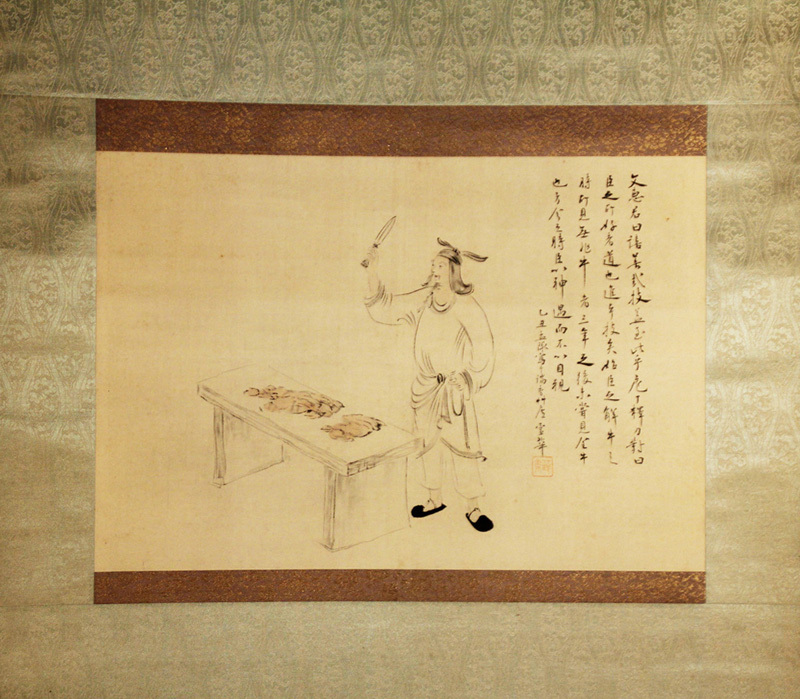 文惠君曰譆善哉技蓋至此乎庖丁釋刀對曰
臣之所好者道也進乎技矣始臣之解牛之
時所見無非牛者三年之後未嘗見全牛
也方今之時臣以神遇而不以目視
乙丑